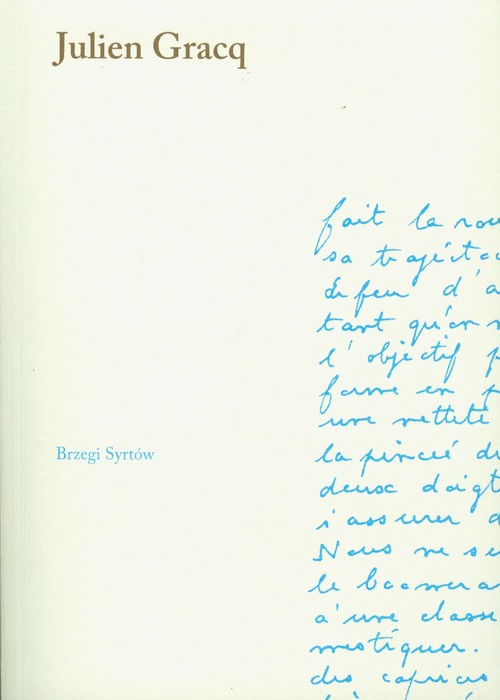 Julien Gracq
fait la rou
sa trajécto
de feu d'a
tant qu'on n
l'objectif p
forme en p
une netteté
Brzegi Syrtów
la pincée du
deux doigt
s'assurer d
Nous ne su
le boomera
d'une classe
mestiquer.
des caprices